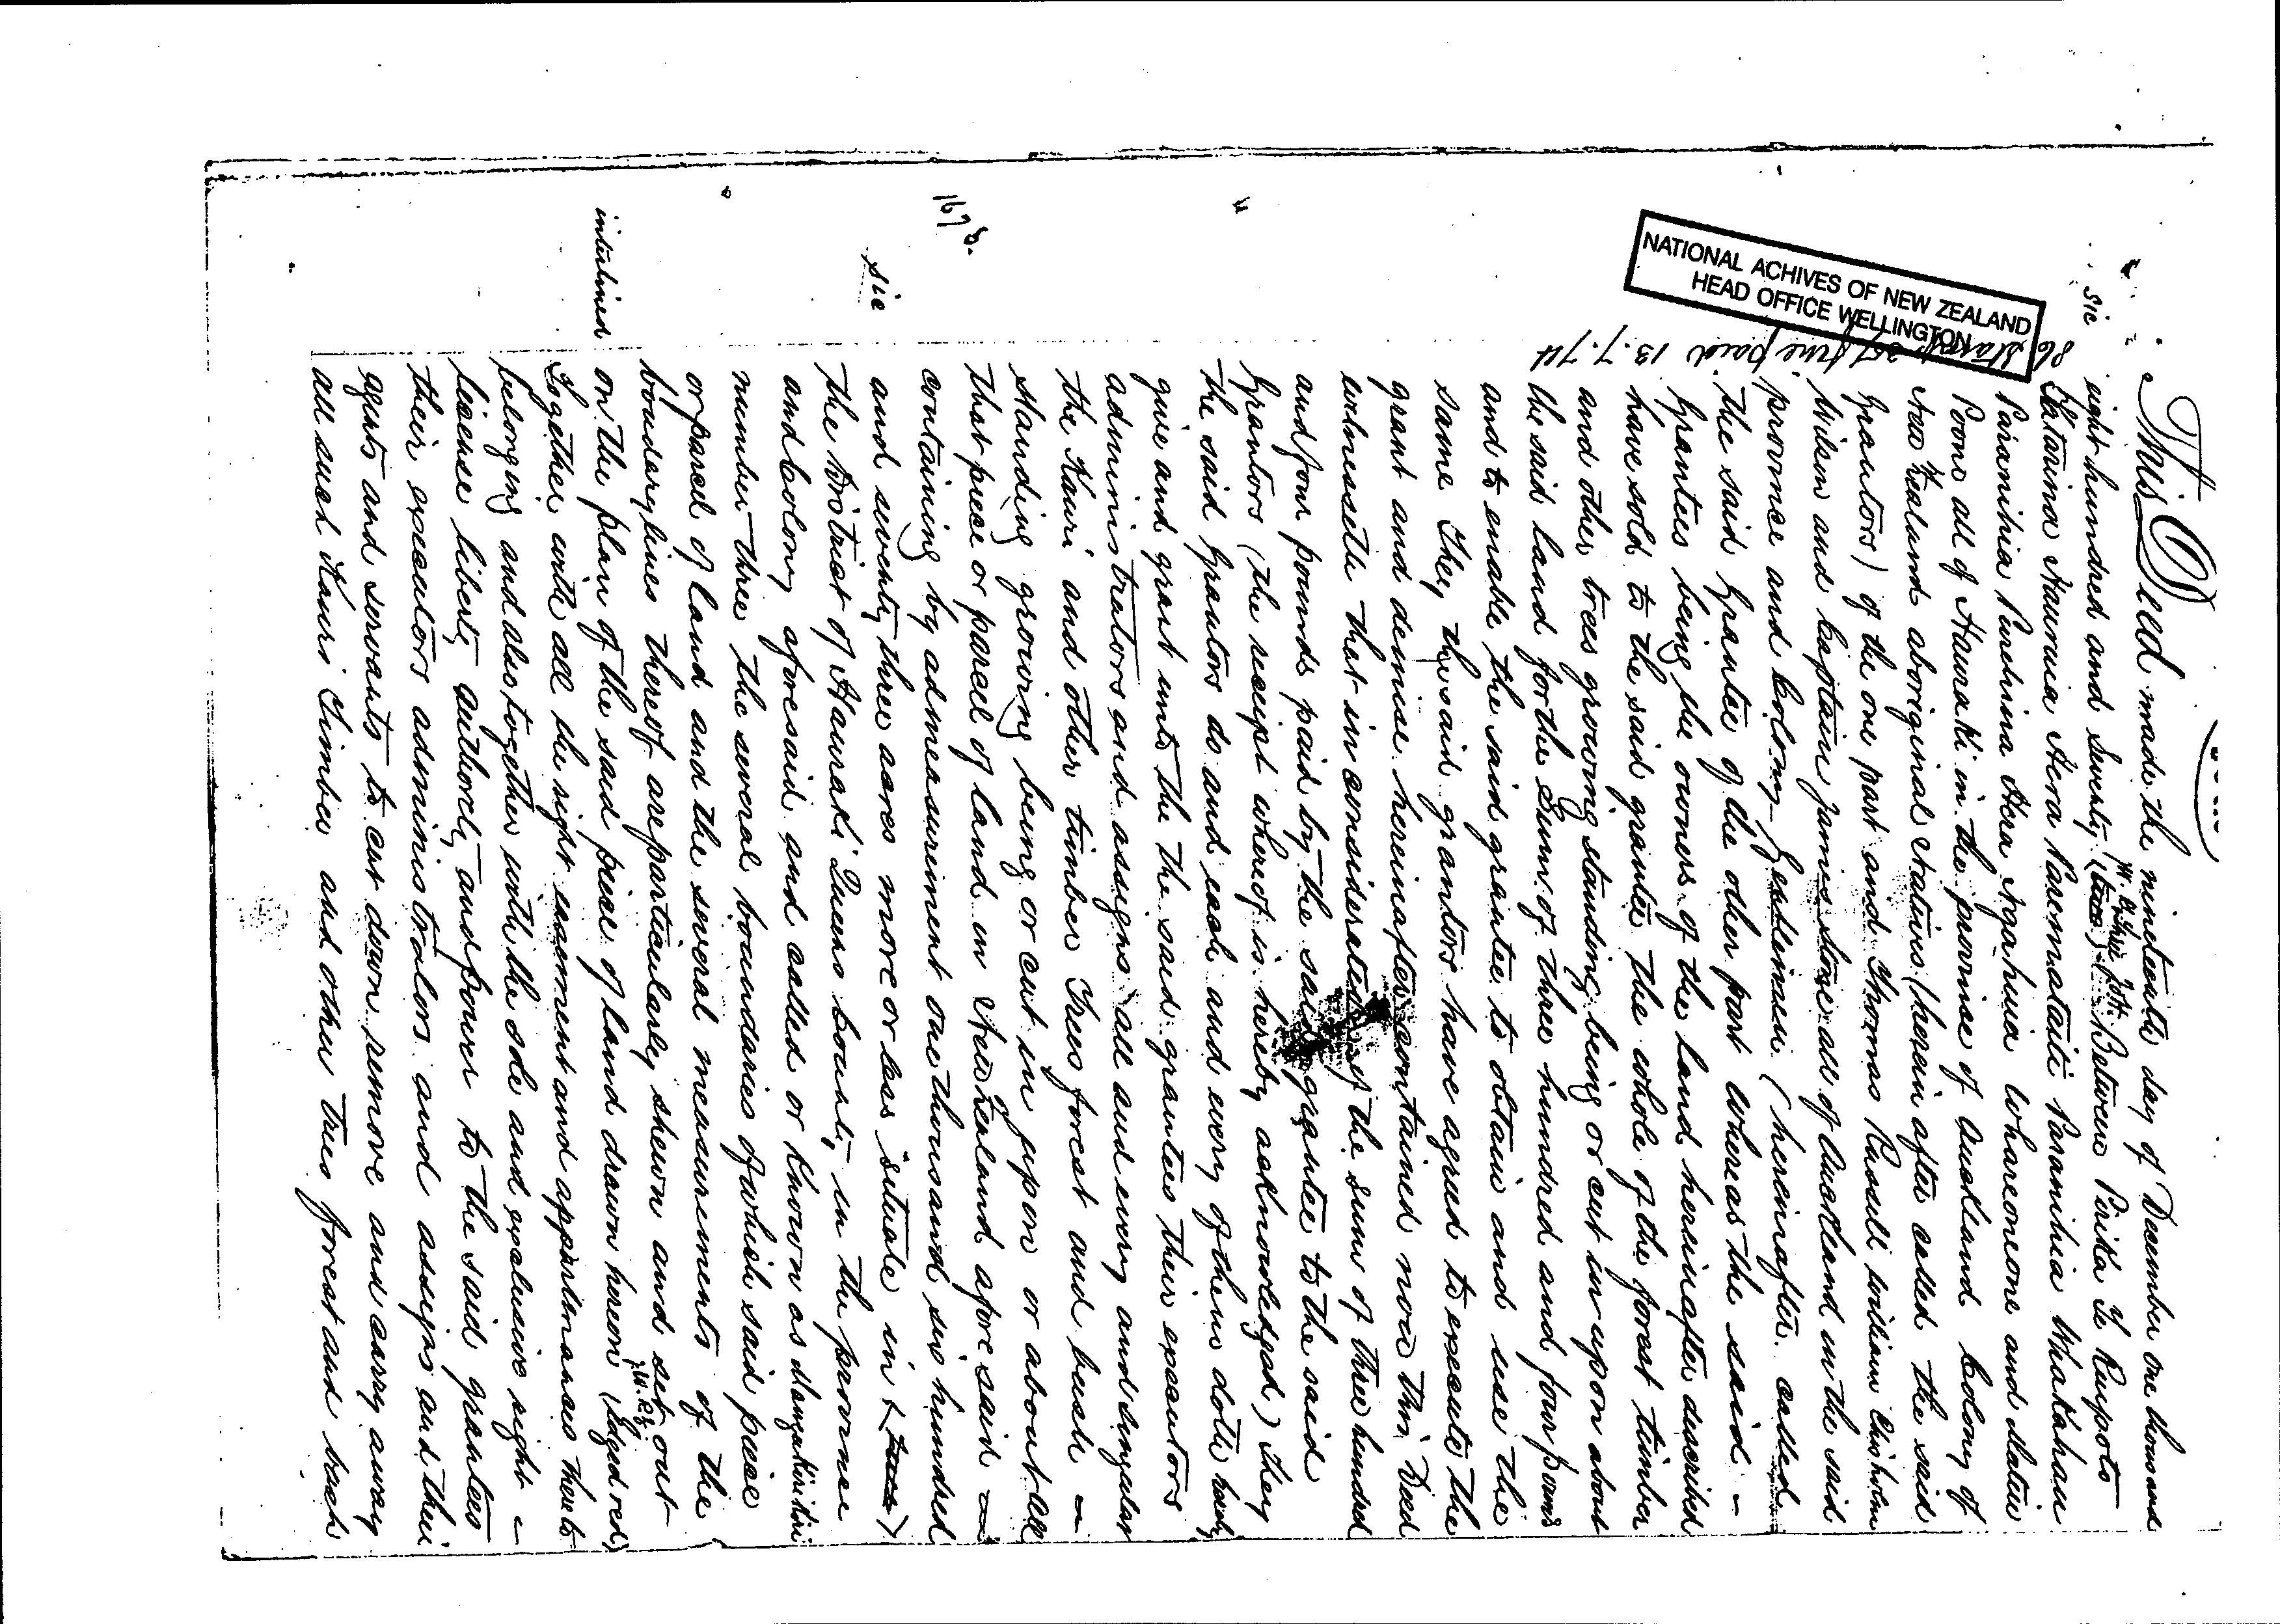 This Deed made the nineteenth day of December one thousand
sic
eight hundred and Seventy (two) Between Pirika Te Ruipoto
Hataina Haunuia Hera Parematati Paranihia Whakahau
Paranihia Purehina Hera Ngahuia Whareonone and Matiu
Poono all of Hauraki in the province of Auckland Colony of
New Zealand aboriginal Natives (herein after called the said
Grantors) of the one part and Thomas Russell William Chisholm
Wilson and Captain James Stone all of Auckland in the said
province and Colony Gentlemen (hereinafter called
the said Grantee of the other part Whereas the said
Grantees being the owners of the land hereinafter described
have sold to the said grantee the whole of the forest timber
and other trees growing standing being or cut in upon about
the said land for the Sum of three hundred and four pounds
and to enable the said grantee to obtain and use the
same They the said grantors have agreed to execute the
grant and demise hereinafter contained now this Deed
witnesseth that in consideration of the sum of three hundred
and four pounds paid by the said grantee to the said
Grantors (the receipt whereof is hereby acknowledged) They
the said Grantors do and each and every of them doth hereby
give and grant unto the the said grantees their executors
administrators and assigns all and every and singular
the Kauri and other timber Trees forest and bush
standing growing being or cut in upon or about all
that piece or parcel of land in New Zealand aforesaid
containing by admeasurement one thousand six hundred
1673.
and seventy three acres more or less situate in
sic
the District of Hauraki Queens County in the province
and Colony aforesaid and called or known as Mangakirikiri
number three the several boundaries of which said piece
or parcel of land and the several measurements of the
boundary lines thereof are particularly shewn and set out
on the plan of the said piece of land drawn hereon (edged red)
interlined
Together with all the right easement and appurtenances thereto
belonging and also together with the sole and exclusive right
license liberty authority and power to the said grantees
their executors administrators and assigns and their
agents and servants to cut down remove and carry away
all such Kauri Timber and other trees forest and bush
NATIONAL ACHIVES OF NEW ZEALAND
HEAD OFFICE WELLINGTON
fine paid 13.7.74